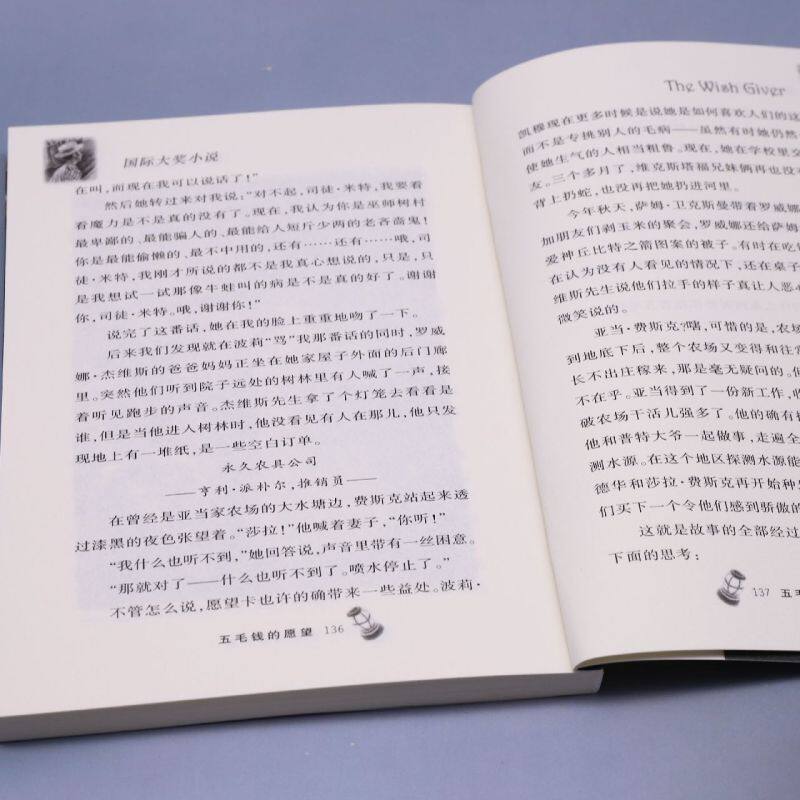 国际大奖小说
在叫,而现在我可以说话了!"
然后她转过来对我说:"对不起,司徒·米特,我要看
看魔力是不是真的没有了。现在,我认为你是巫师树村
最卑鄙的、最能骗人的、最能给人短斤少两的老吝啬鬼!
你是最能偷懒的、最不中用的,还有……还有……哦,司
徒·米特,我刚才所说的都不是我真心想说的,只是,只
是我想试一试那像牛蛙叫的病是不是真的好了。谢谢
你,司徒·米特。哦,谢谢你!"
说完了这番话,她在我的脸上重重地吻了一下。
后来我们发现就在波莉"骂"我那番话的同时,罗威
娜·杰维斯的爸爸妈妈正坐在她家屋子外面的后门廊
里。突然他们听到院子远处的树林里有人喊了一声,接
着听见跑步的声音。杰维斯先生拿了个灯笼去看看是
谁,但是当他进入树林时,他没看见有人在那儿,他只发
现地上有一堆纸,是一些空白订单。
永久农具公司
——亨利·派朴尔,推销员——
在曾经是亚当家农场的大水塘边,费斯克站起来透
过漆黑的夜色张望着。"莎拉!"他喊着妻子,"你听!"
"我什么也听不到,"她回答说,声音里带有一丝困意。
"那就对了——什么也听不到了。喷水停止了。"
不管怎么说,愿望卡也许的确带来一些益处。波莉·
五毛钱的愿望 136
The Wish Giver
凯穆现在更多时候是说她是如何喜欢人们的这
而不是专挑别人的毛病——虽然有时她仍然
使她生气的人相当粗鲁。现在,她在学校里交
友。三个多月了,维克斯塔福兄妹俩再也没
背上扔蛇,也没再把她扔进河里。
今年秋天,萨姆·卫克斯曼带着罗威娜
加朋友们剥玉米的聚会,罗威娜还给萨姆
爱神丘比特之箭图案的被子。有时在吃
在认为没有人看见的情况下,还在桌子
维斯先生说他们拉手的样子真让人恶心
微笑说的。
亚当·费斯克?嗐,可惜的是,农场
到地底下后,整个农场又变得和往常
长不出庄稼来,那是毫无疑问的。但
不在乎。亚当得到了一份新工作,收
破农场干活儿强多了。他的确有挖
他和普特大爷一起做事,走遍全
测水源。在这个地区探测水源能
德华和莎拉·费斯克再开始种
们买下一个令他们感到骄傲的
这就是故事的全部经过
下面的思考:
137 五毛